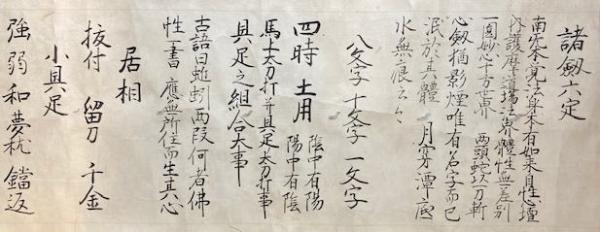 諸劔六定
南無本覚法身本有如来自性心壇
内護摩道場法界體性無差別
一圓妙心十方世界 両頭蛇以刀斬
心劔猶影煙唯有名字而已
泯於其體 月穿潭底
水無痕云々
八文字 十文字 一文字
四時 土用 陰中有陽 陽中有陰
馬上太刀打并具足太刀打事
具足之組合大事
古語曰蚯蚓両段何者佛
性書 應無所住而生其心
居相
抜付 留刀 千金
小具足
強弱 和 夢枕 鐺返